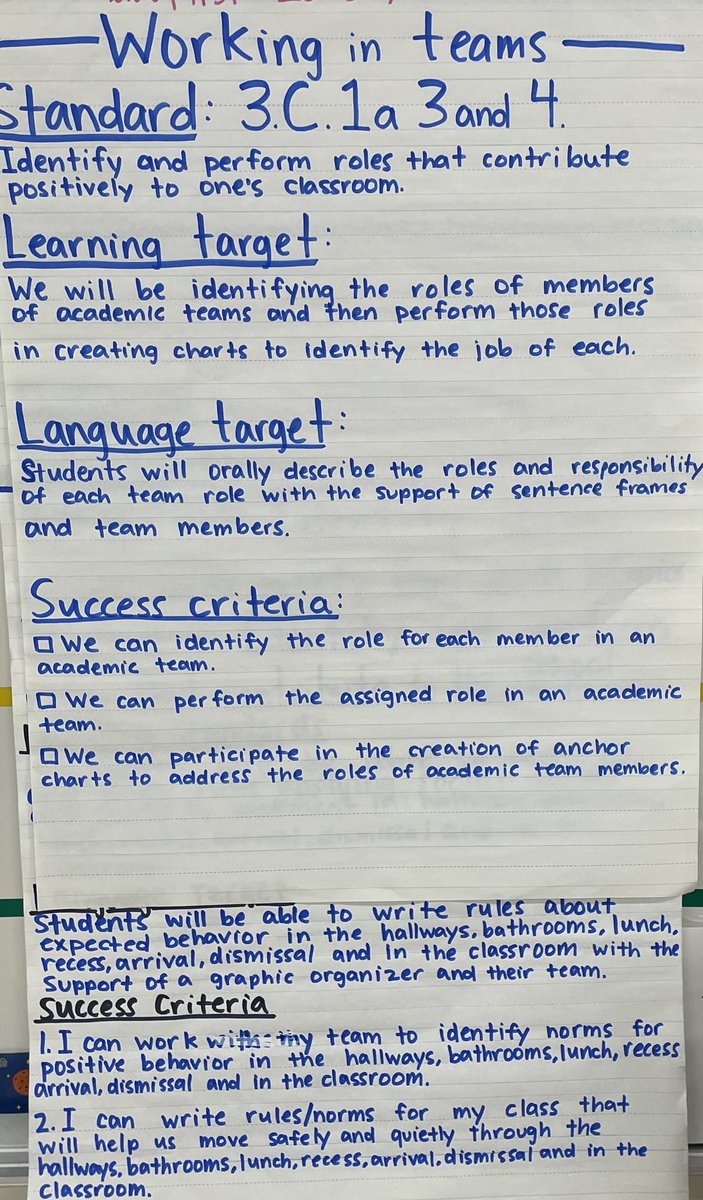 Working in teams
Standard: 3.C.1a 3 and 4.
Identify and perform roles that contribute
positively to one's classroom.
Learning target:
We will be identifying the roles of members
of academic teams and then perform those roles
in creating charts to identify the job of each.
Language target:
Students will orally describe the roles and responsibility
of each team role with the support of sentence frames
and team members.
Success criteria:
□ We can identify the role for each member in an
academic team.
□ We can perform the assigned role in an academic
team.
□ We can participate in the creation of anchor
charts to address the roles of academic team members.
Students will be able to write rules about
expected behavior in the hallways, bathrooms, lunch,
recess, arrival, dismissal and in the classroom with the
support of a graphic organizer and their team.
Success Criteria
1. I can work with my team to identify norms for
positive behavior in the hallways, bathrooms, lunch, recess
arrival, dismissal and in the classroom.
2. I can write rules/norms for my class that
will help us move safely and quietly through the
hallways, bathrooms, lunch, recess, arrival, dismissal and in the
classroom.